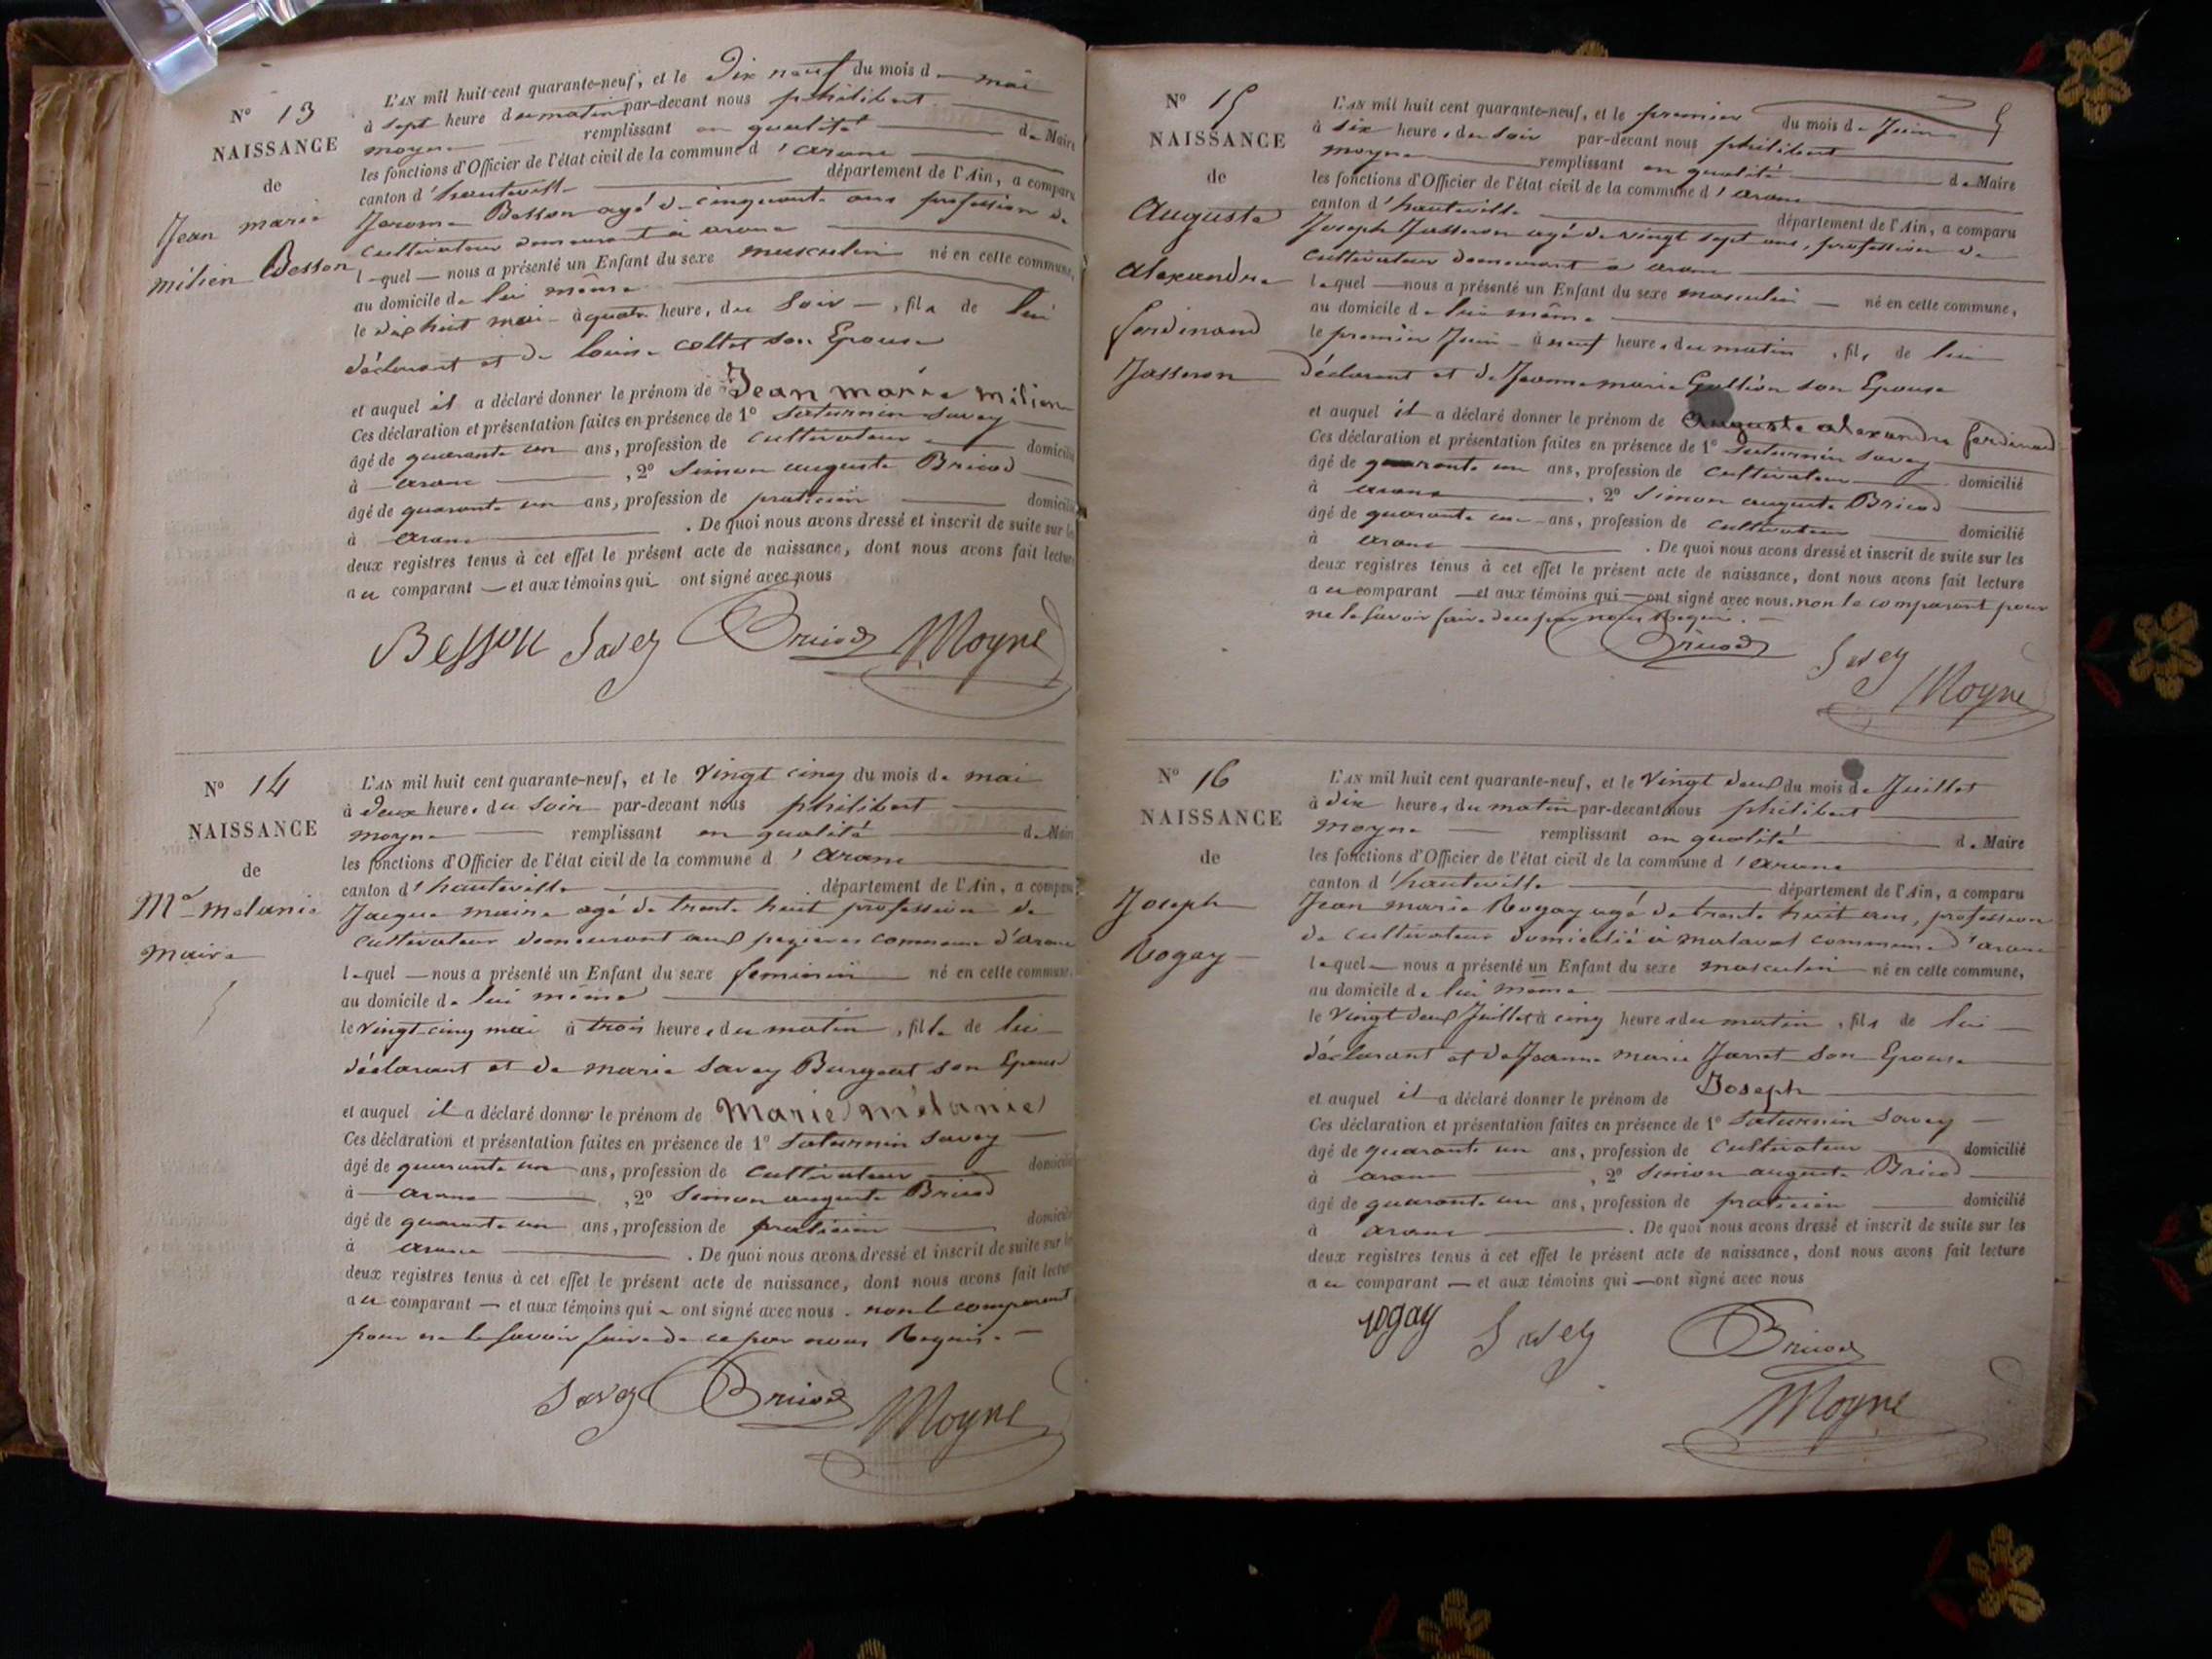 N° 13
NAISSANCE
de
Jean marie
milien Besson
L'AN mil huit cent quarante-neuf, et le Dix neuf du mois de mai
à sept heure du matin par-devant nous philibert
moyne remplissant en qualité de Maire
les fonctions d'Officier de l'état civil de la commune d'arane
canton d'hauteville département de l'Ain, a comparu
Jerome Besson agé de cinquante ans profession de
cultivateur demeurant à arane
lequel nous a présenté un Enfant du sexe masculin né en cette commune,
au domicile de lui même
le dix huit mai à quatre heure, du soir, fils de lui
déclarant et de louise collet son Epouse
et auquel il a déclaré donner le prénom de Jean marie milien
Ces déclaration et présentation faites en présence de 1° saturnin savey
âgé de quarante un ans, profession de cultivateur domicilié
à arane, 2° Simon auguste Bricod
âgé de quarante un ans, profession de praticien domicilié
à arane. De quoi nous avons dressé et inscrit de suite sur les
deux registres tenus à cet effet le présent acte de naissance, dont nous avons fait lecture
au comparant et aux témoins qui ont signé avec nous
Besson Savey Bricod Moyne
N° 14
NAISSANCE
de
Mie melanie
maire
L'AN mil huit cent quarante-neuf, et le vingt cinq du mois de mai
à deux heures du soir par-devant nous philibert
moyne remplissant en qualité de Maire
les fonctions d'Officier de l'état civil de la commune d'arane
canton d'hauteville département de l'Ain, a comparu
Jacque maire agé de trente huit profession de
cultivateur demeurant aux pezieres commune d'arane
lequel nous a présenté un Enfant du sexe feminin né en cette commune,
au domicile de lui même
le vingt-cinq mai à trois heures du matin, fille de lui
déclarant et de marie savey Burgeat son Epouse
et auquel il a déclaré donner le prénom de Marie mélanie
Ces déclaration et présentation faites en présence de 1° saturnin savey
âgé de quarante un ans, profession de cultivateur domicilié
à arane, 2° Simon auguste Bricod
âgé de quarante un ans, profession de praticien domicilié
à arane. De quoi nous avons dressé et inscrit de suite sur les
deux registres tenus à cet effet le présent acte de naissance, dont nous avons fait lecture
au comparant et aux témoins qui ont signé avec nous. non le comparant
pour ne le savoir faire de ce par nous Requis.
Savey Bricod Moyne
N° 15
NAISSANCE
de
Auguste
alexandre
ferdinand
Josseron
L'AN mil huit cent quarante-neuf, et le premier du mois de Juin
à six heures du soir par-devant nous philibert
moyne remplissant en qualité de Maire
les fonctions d'Officier de l'état civil de la commune d'arane
canton d'hauteville département de l'Ain, a comparu
Joseph Josseron agé de vingt sept ans, profession de
cultivateur demeurant à arane
lequel nous a présenté un Enfant du sexe masculin né en cette commune,
au domicile de lui même
le premier Juin à neuf heures du matin, fils de lui
déclarant et de Jeanne marie son Epouse
et auquel il a déclaré donner le prénom de Auguste alexandre ferdinand
Ces déclaration et présentation faites en présence de 1° saturnin savey
âgé de quarante un ans, profession de cultivateur domicilié
à arane, 2° Simon auguste Bricod
âgé de quarante un ans, profession de cultivateur domicilié
à arane. De quoi nous avons dressé et inscrit de suite sur les
deux registres tenus à cet effet le présent acte de naissance, dont nous avons fait lecture
au comparant et aux témoins qui ont signé avec nous. non le comparant pour
ne le savoir faire de ce par nous Requis.
Bricod Savey
Moyne
N° 16
NAISSANCE
de
Joseph
Rogay
L'AN mil huit cent quarante-neuf, et le vingt deux du mois de Juillet
à dix heures du matin par-devant nous philibert
moyne remplissant en qualité de Maire
les fonctions d'Officier de l'état civil de la commune d'arane
canton d'hauteville département de l'Ain, a comparu
Jean marie Rogay agé de trente huit ans, profession
de cultivateur domicilié à malaval commune d'arane
lequel nous a présenté un Enfant du sexe masculin né en cette commune,
au domicile de lui même
le vingt deux Juillet à cinq heures du matin, fils de lui
déclarant et de Jeanne marie Jarret son Epouse
et auquel il a déclaré donner le prénom de Joseph
Ces déclaration et présentation faites en présence de 1° saturnin savey
âgé de quarante un ans, profession de cultivateur domicilié
à arane, 2° Simon auguste Bricod
âgé de quarante un ans, profession de praticien domicilié
à arane. De quoi nous avons dressé et inscrit de suite sur les
deux registres tenus à cet effet le présent acte de naissance, dont nous avons fait lecture
au comparant et aux témoins qui ont signé avec nous
rogay Savey Bricod
Moyne